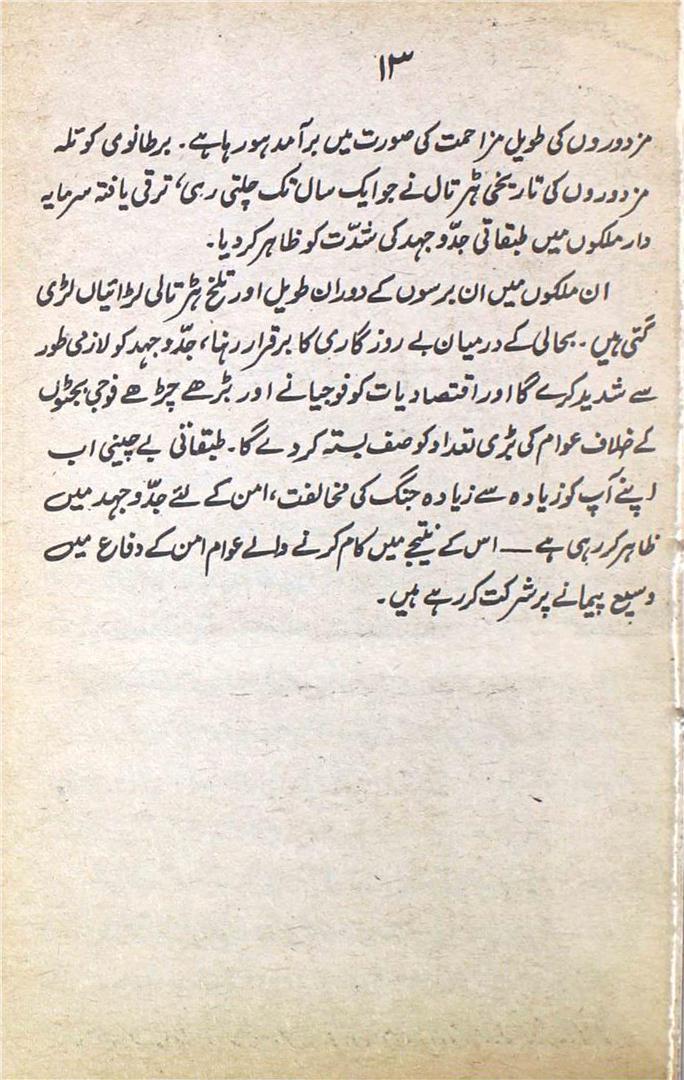 ۱۳
مزدوروں کی طویل مزاحمت کی صورت میں برآمد ہو رہا ہے۔ برطانوی کوئلہ
مزدوروں کی تاریخی ہڑتال نے جو ایک سال تک چلتی رہی، ترقی یافتہ سرمایہ
دار ملکوں میں طبقاتی جدّوجہد کی شدّت کو ظاہر کر دیا۔
ان ملکوں میں ان برسوں کے دوران طویل اور تلخ ہڑتالی لڑائیاں لڑی
گئی ہیں۔ بحالی کے درمیان بے روزگاری کا برقرار رہنا، جدّوجہد کو لازمی طور
سے شدید کرے گا اور اقتصادیات کو فوجیانے اور بڑھے چڑھے فوجی بجٹوں
کے خلاف عوام کی بڑی تعداد کو صف بستہ کر دے گا۔ طبقاتی بےچینی اب
اپنے آپ کو زیادہ سے زیادہ جنگ کی مخالفت، امن کے لئے جدّوجہد میں
ظاہر کر رہی ہے — اس کے نتیجے میں کام کرنے والے عوام امن کے دفاع میں
وسیع پیمانے پر شرکت کر رہے ہیں۔